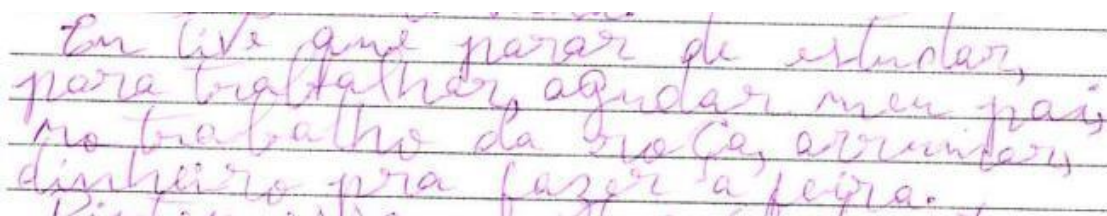 Eu tive que parar de estudar,
para trabalhar, agudar meu pai,
no trabalho da roça, arrumar,
dinheiro pra fazer a feira.